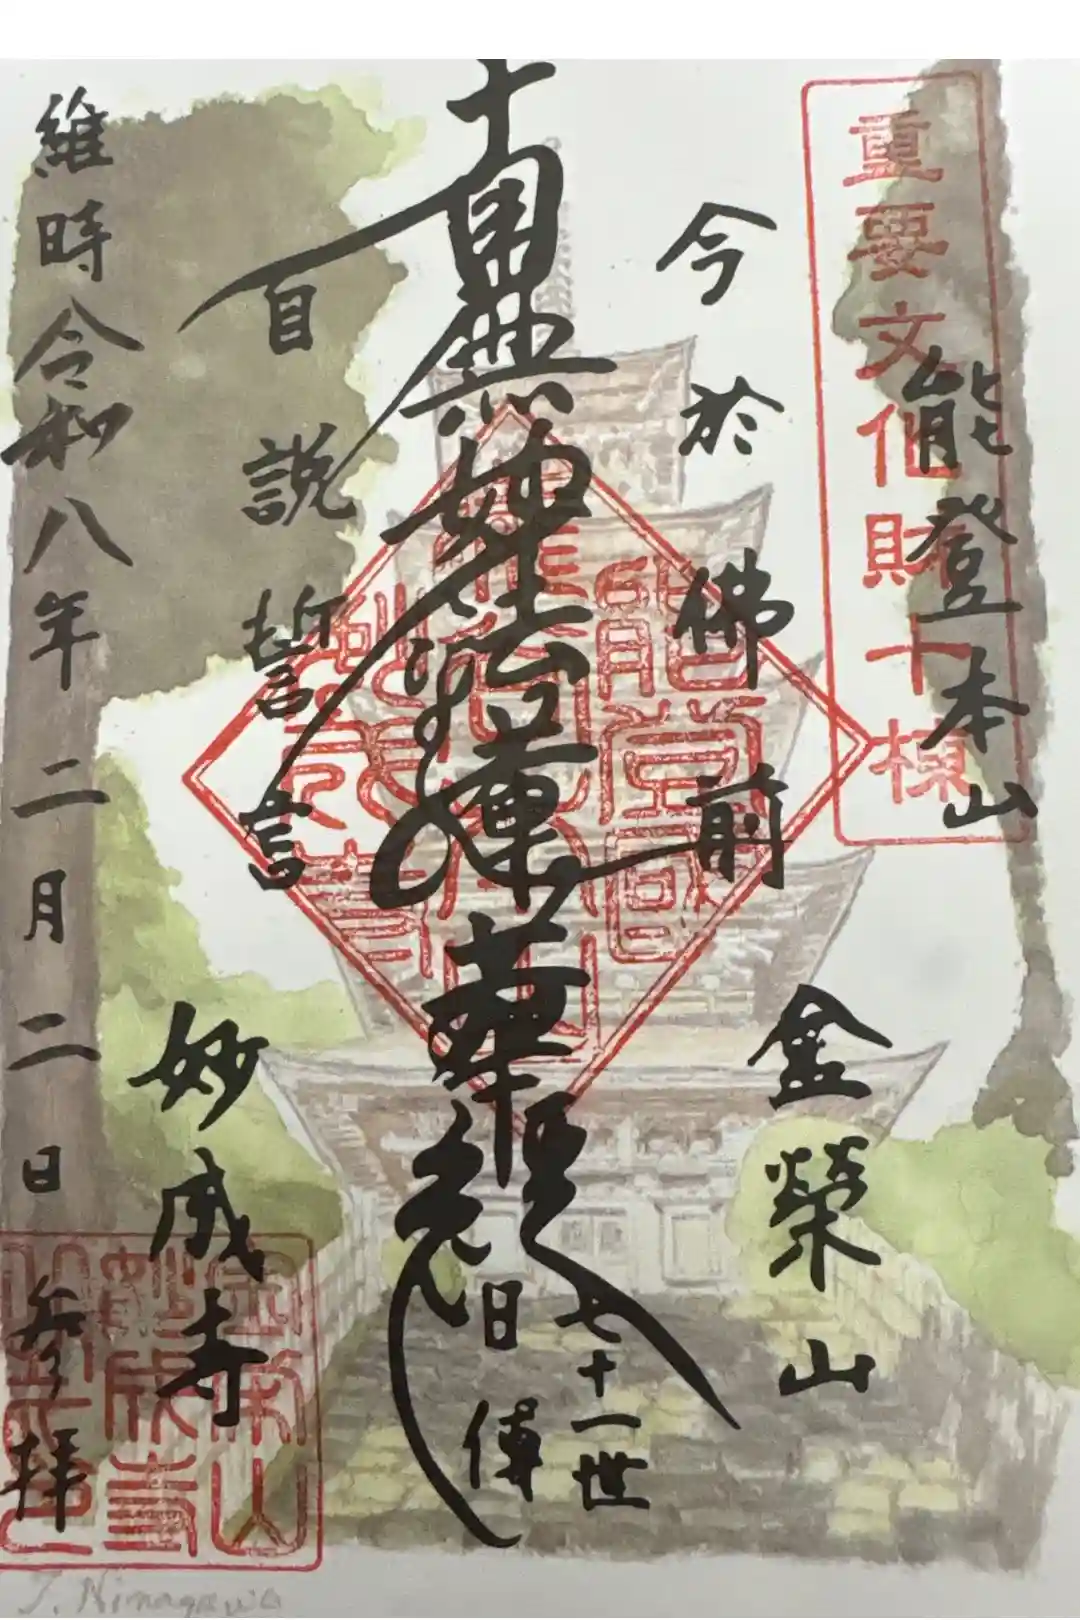 重要文化財十棟
能登本山
金榮山
今於佛前
南無妙法蓮華経
七十一世
日傳
自説誓言
妙成寺
維時令和八年二月二日参拝
金栄山
妙成寺
J. Ninagawa